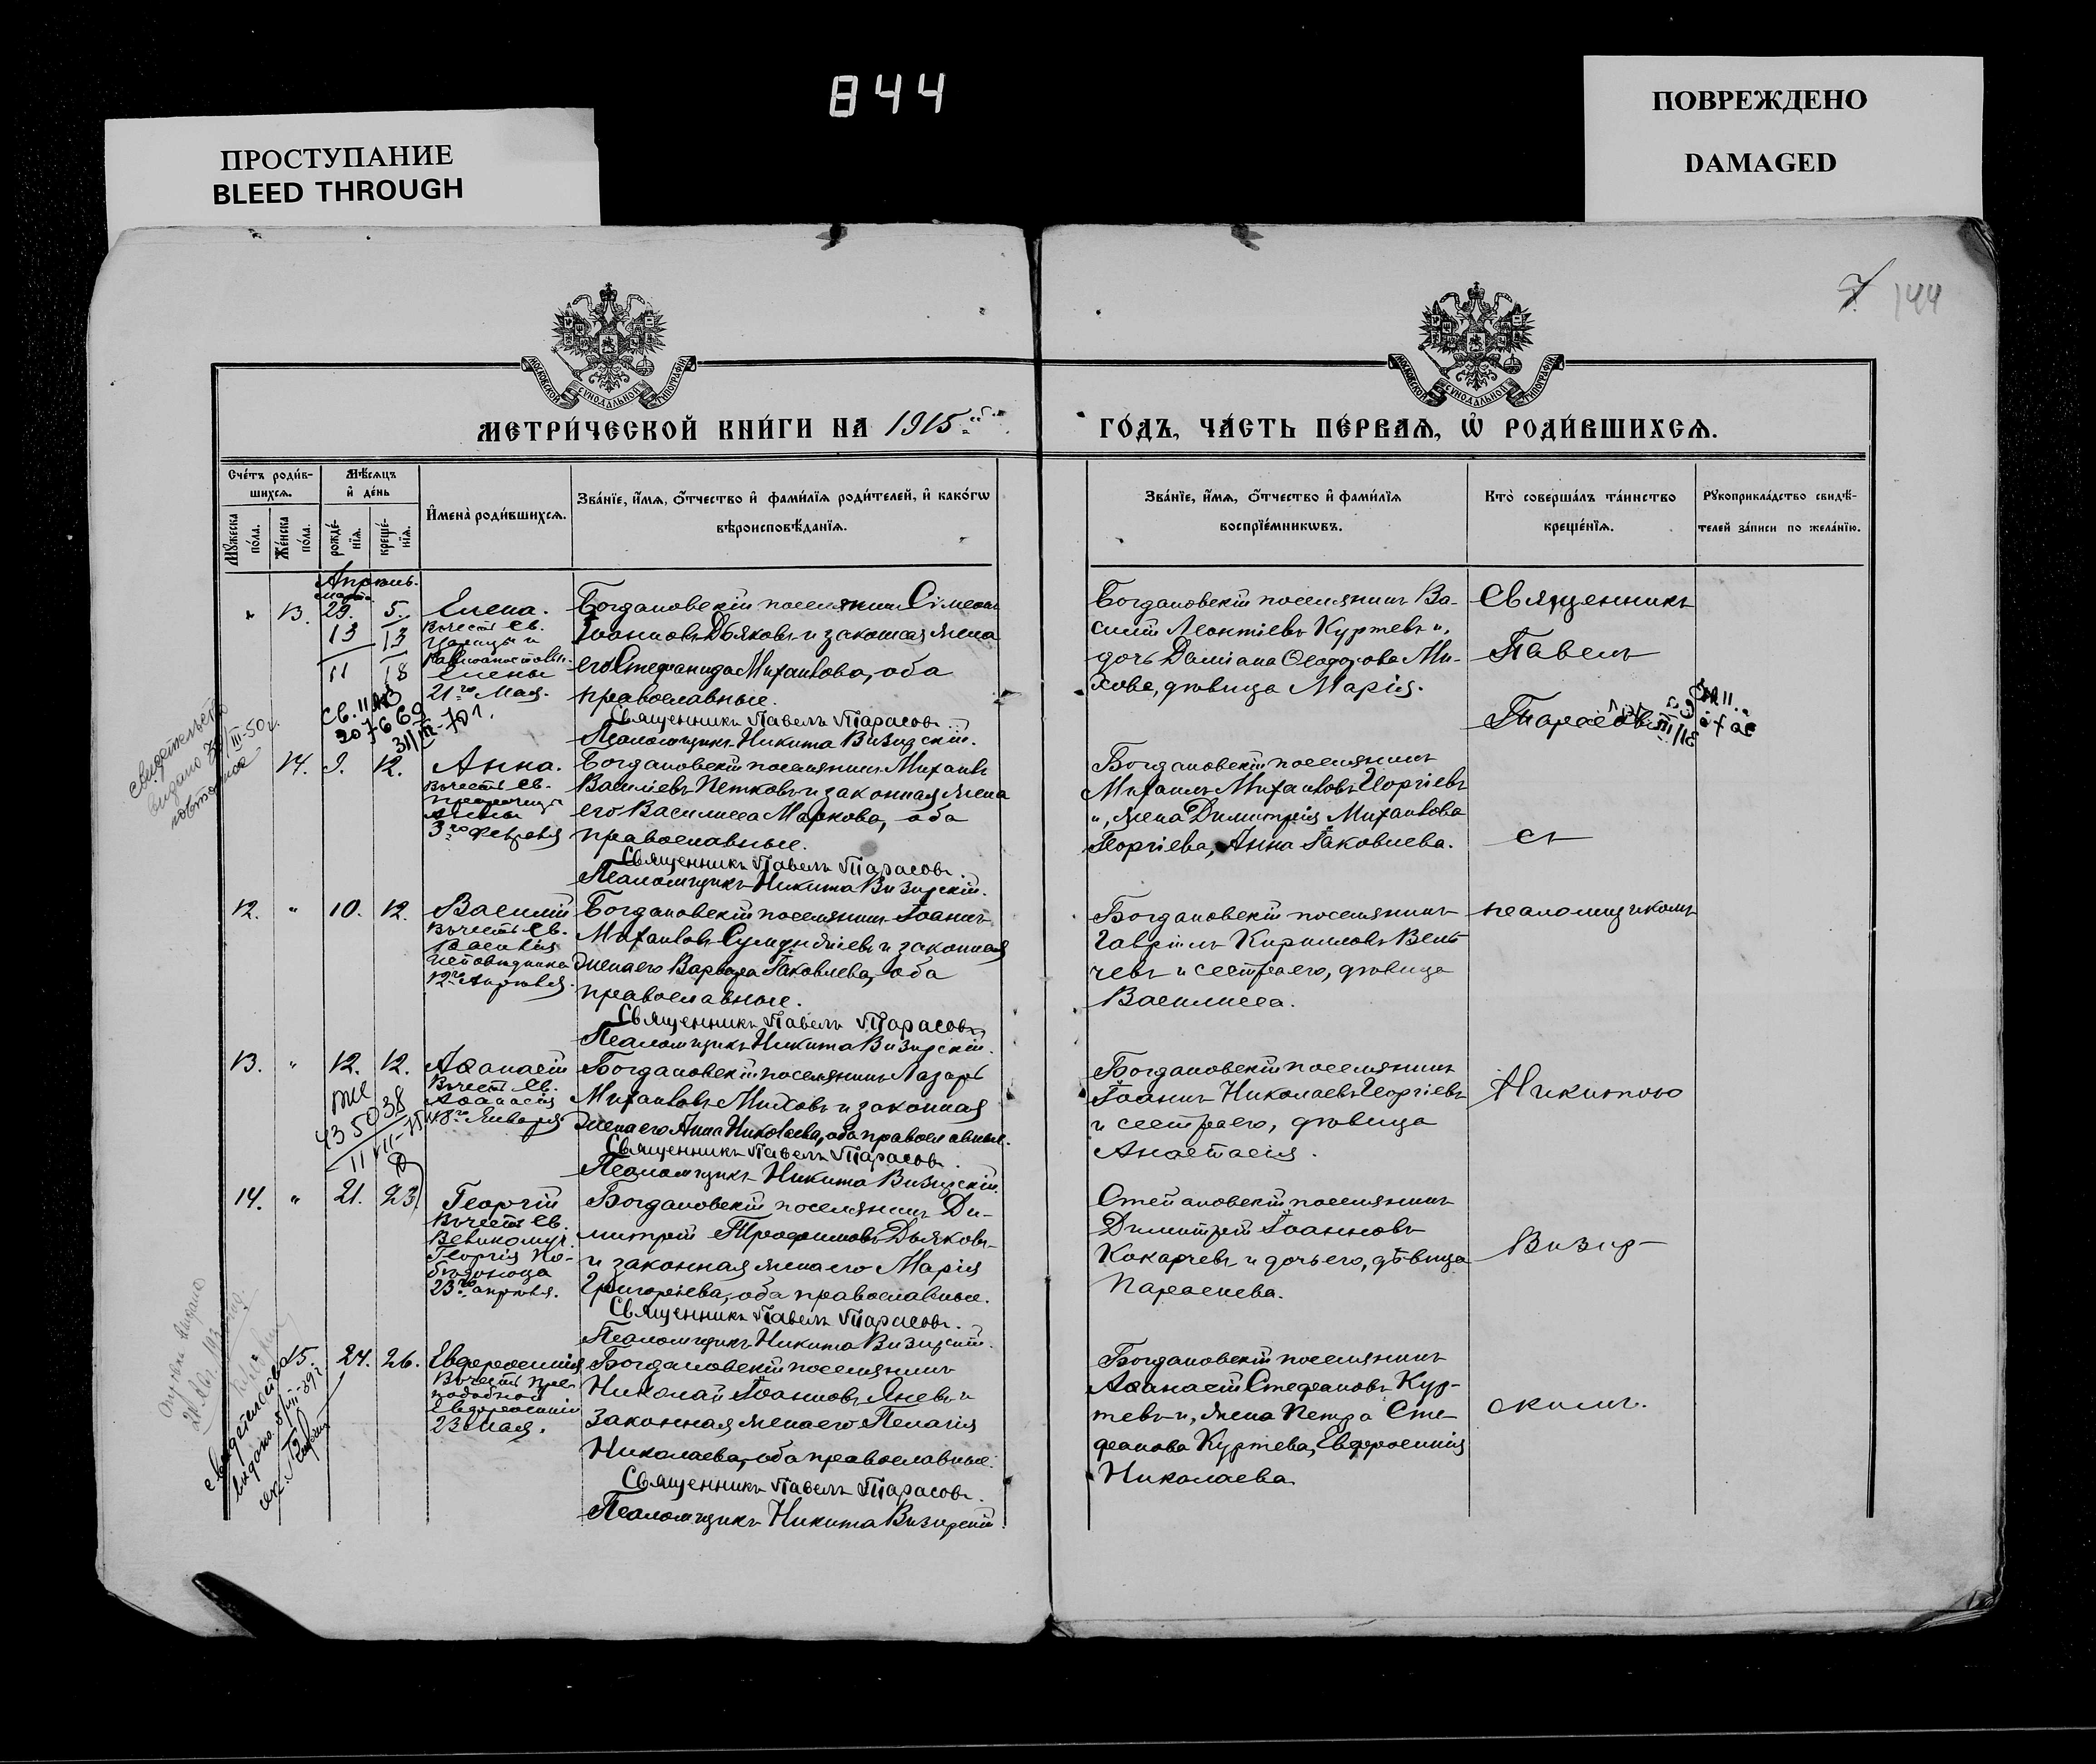 844
ПРОСТУПАНИЕ
BLEED THROUGH
ПОВРЕЖДЕНО
DAMAGED
7
144
МОСКОВСКОЙ СѴНОДАЛЬНОЙ ТИПОГРАФІИ
МОСКОВСКОЙ СѴНОДАЛЬНОЙ ТИПОГРАФІИ
МЕТРИ́ЧЕСКОЙ КНИ́ГИ НА 1915
ГО́ДЪ, ЧА́СТЬ ПЕ́РВАѦ, Ѡ҆ РОДИ́ВШИХСѦ.
Сче́тъ роди́в-
шихсѧ.
Мꙋ́жеска по́ла.
Же́нска по́ла.
Мѣ́сѧцъ
и҆ де́нь
рожде́-
нїѧ.
креще́-
нїѧ.
И҆мена̀ роди́вшихсѧ.
Зва́нїе, и҆́мѧ, ѻ҆́тчество и҆ фами́лїѧ роди́телей, и҆ како́гѡ
вѣроисповѣ́данїѧ.
Зва́нїе, и҆́мѧ, ѻ҆́тчество и҆ фами́лїѧ
воспрїе́мникѡвъ.
Кто̀ соверша́лъ та́инство
креще́нїѧ.
Рꙋкоприкла́дство свидѣ́-
телей за́писи по жела́нїю.
Апрѣль.
Марта
" 13. 29. 5. Елена.
Въ честь Св.
Царицы и
Равноапостольн.
Елены
21го Мая.
Богдановскій поселянинъ Сѵмеонъ
Іоанновъ Дьяковъ и законная жена
его Стефанида Михайлова, оба
православные.
Священникъ Павелъ Тарасовъ.
Псаломщикъ Никита Визирскій.
Богдановскій поселянинъ Ва-
силій Леонтіевъ Куртевъ и,
дочь Даміана Ѳеодорова Ми-
хова, дѣвица Марія.
Священникъ
Павелъ
Тарасовъ
13 13
11 18
207669
31/III-70г.
свидетельство
видано III-50г.
повторное
14. 9. 12. Анна.
Въ честь Св.
Анны
3го Февраля
Богдановскій поселянинъ Михаилъ
Василіевъ Петковъ и законная жена
его Василисса Маркова, оба
православные.
Священникъ Павелъ Тарасовъ.
Псаломщикъ Никита Визирскій.
Богдановскій поселянинъ
Михаилъ Михайловъ Георгіевъ
и, жена Димитрія Михайлова
Георгіева, Анна Іаковлева.
съ
12. " 10. 12. Василій
Въ честь Св.
Василія
Исповѣдника
12го Апрѣля.
Богдановскій поселянинъ Іоаннъ
Михайловъ и законная
жена его Варвара Іаковлева, оба
православные.
Священникъ Павелъ Тарасовъ
Псаломщикъ Никита Визирскій.
Богдановскій поселянинъ
Гавріилъ Кирилловъ Вель-
чевъ и сестра его, дѣвица
Василисса.
псаломщикомъ
13. " 12. 12. Аѳанасій
Въ честь Св.
Аѳанасія
18го Января
Богдановскій поселянинъ Лазарь
Михайловъ Миховъ и законная
жена его Анна Николаева, оба православные.
Священникъ Павелъ Тарасовъ.
Псаломщикъ Никита Визирскій.
Богдановскій поселянинъ
Іоаннъ Николаевъ Георгіевъ
и сестра его, дѣвица
Анастасія.
Никитою
435038
14. " 21. 23. Георгій
Въ честь Св.
Великомуч.
Георгія По-
бѣдоносца
23го апрѣля.
Богдановскій поселянинъ Ди-
митрій Трофимовъ Дьяковъ
и законная жена его Марія
Григоріева, оба православные.
Священникъ Павелъ Тарасовъ.
Псаломщикъ Никита Визирскій.
Степановскій поселянинъ
Димитрій Іоанновъ
Кокарчевъ и дочь его, дѣвица
Параскева.
Визир-
15. 24. 26. Евфросинія
Въ честь пре-
подобной
Евфросиніи
23 Мая.
Богдановскій поселянинъ
Николай Іоанновъ Яневъ и
законная жена его Пелагія
Николаева, оба православные.
Священникъ Павелъ Тарасовъ.
Псаломщикъ Никита Визирскій.
Богдановскій поселянинъ
Аѳанасій Стефановъ Кур-
тевъ и, жена Петра Сте-
фанова Куртева, Евфросинія
Николаева
скимъ.
свидетельство
видано